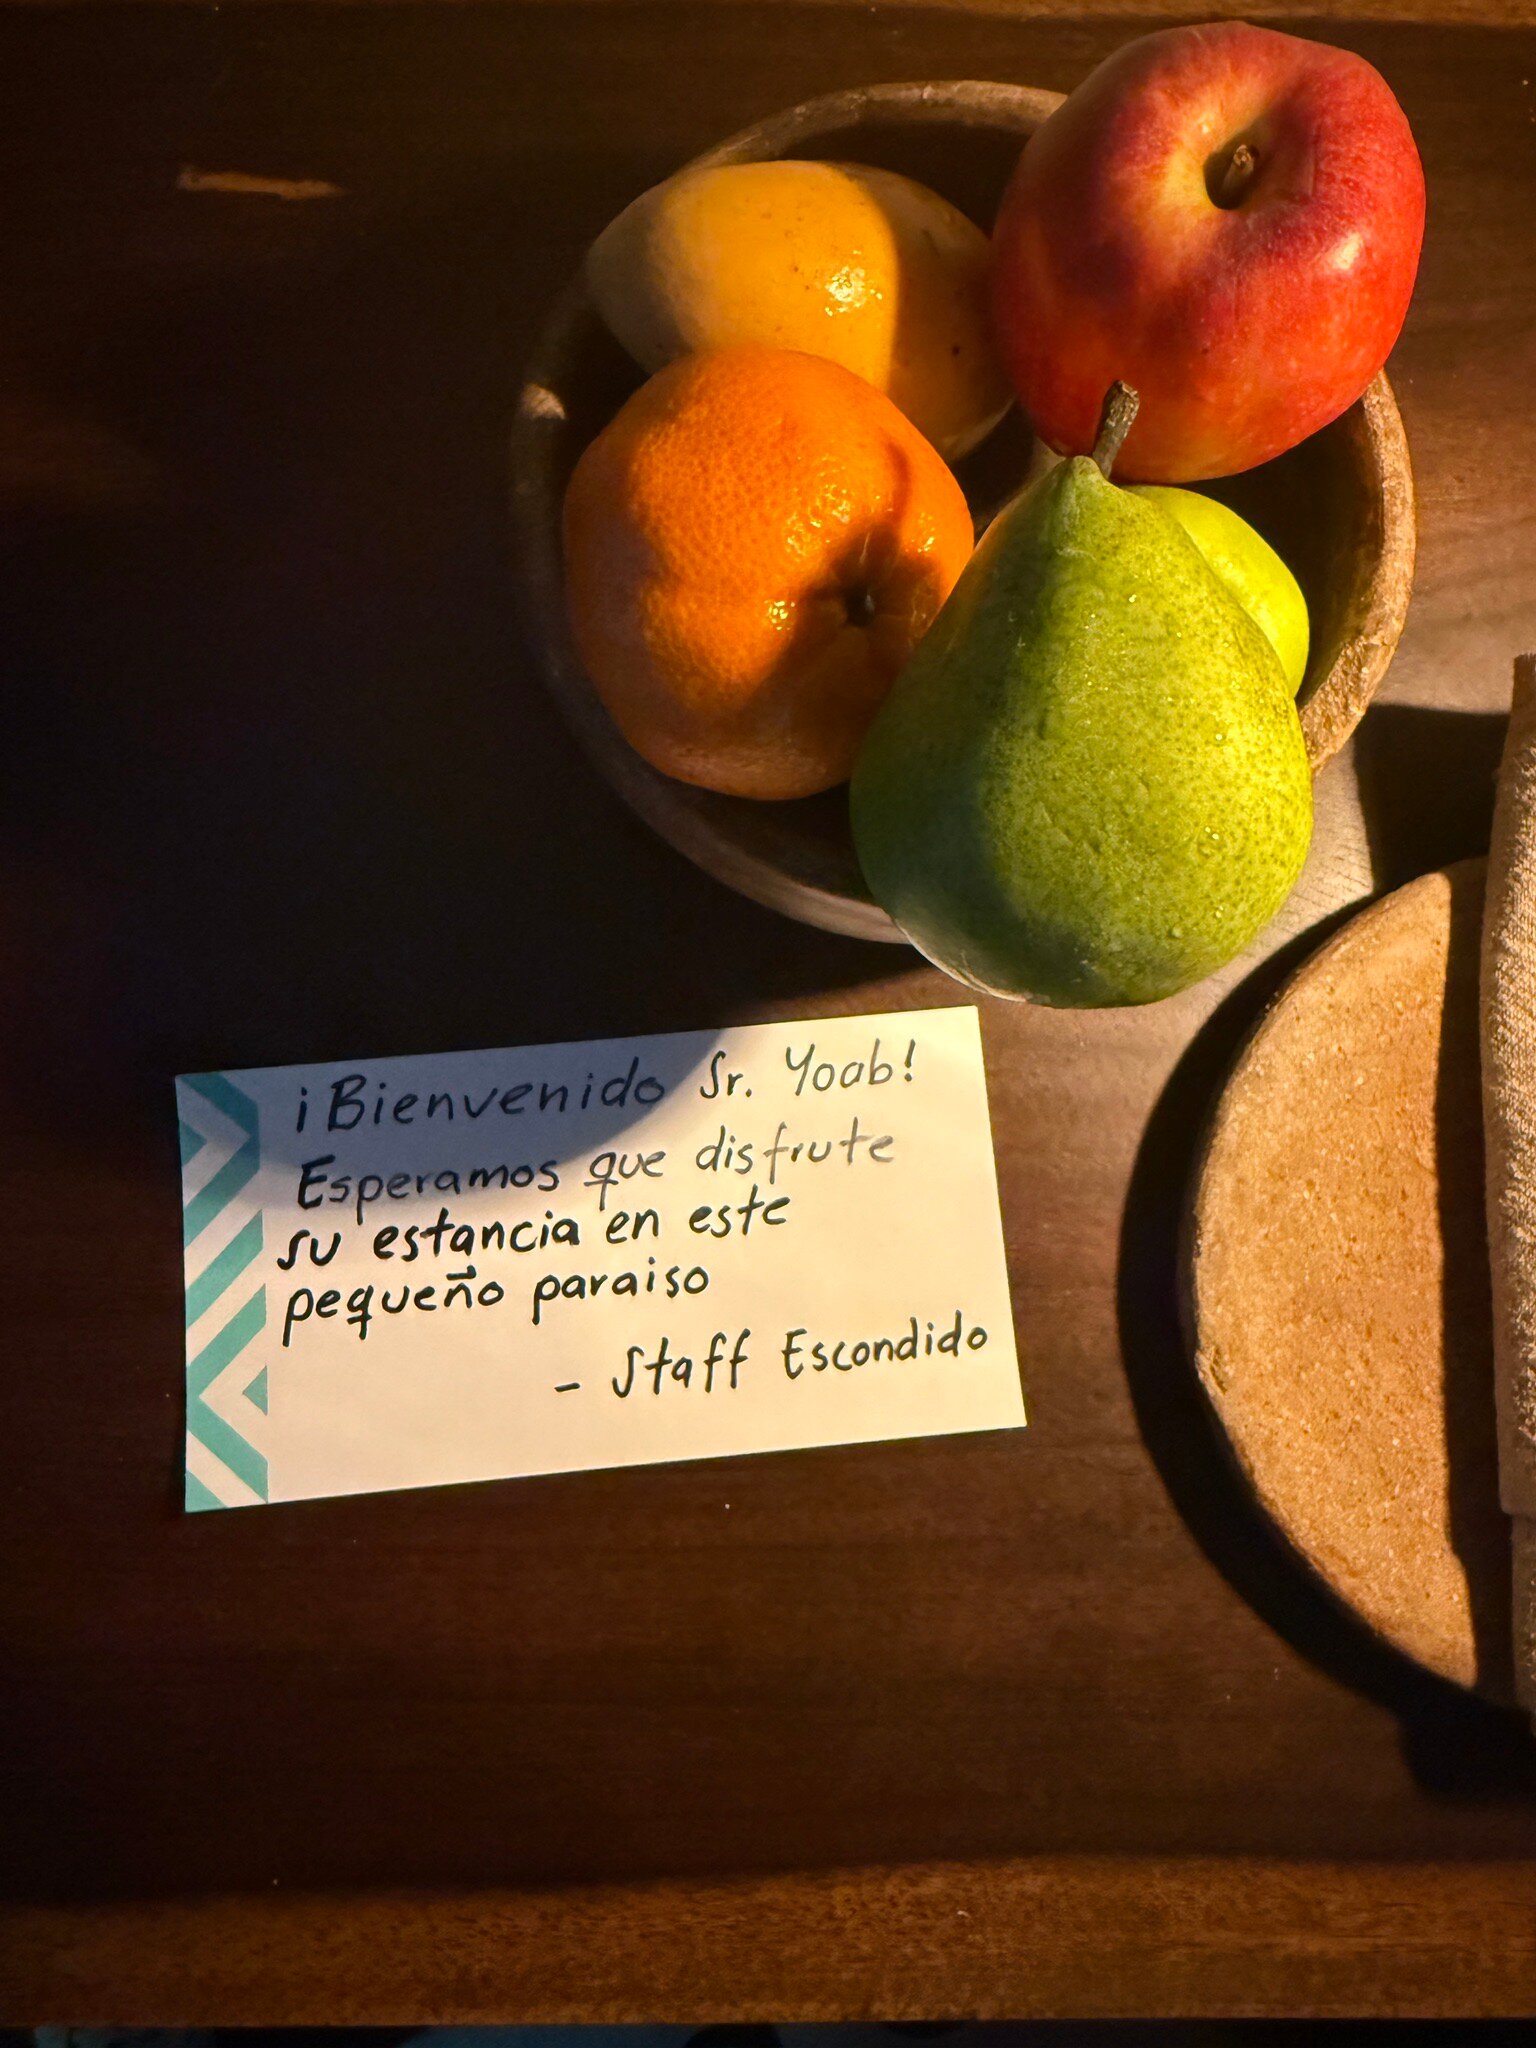 ¡Bienvenido Sr. Yoab!
Esperamos que disfrute
su estancia en este
pequeño paraiso
- Staff Escondido